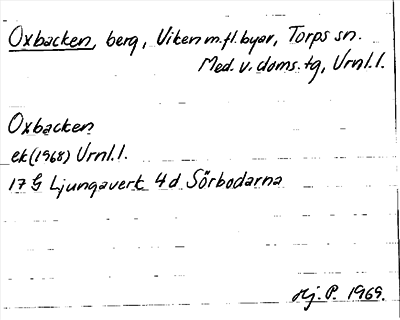 Oxbacken, berg, Viken m.fl. byar, Torps sn.
Med. v. doms. tg, Urnl. l.
Oxbacken
ek (1968) Urnl. l.
17 G Ljungaverk 4 d Sörbodarna
Hj. P. 1969.